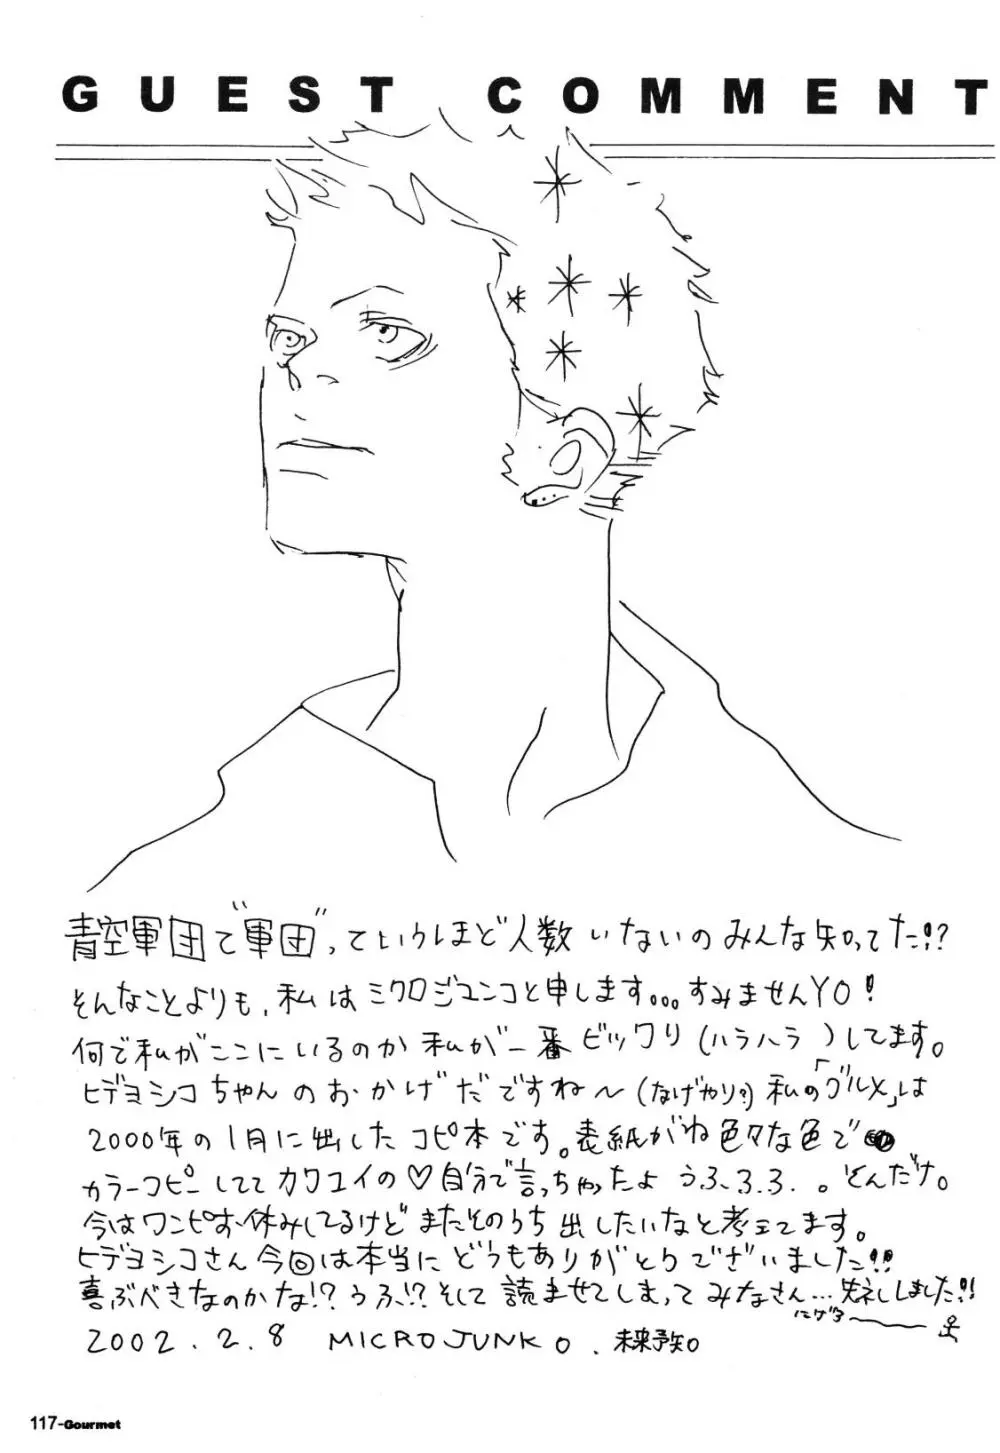 GUEST COMMENT
青空軍団で"軍団"っていうほど人数いないのみんな知ってた!?
そんなことよりも、私はミクロジュンコと申します。。。すみませんYO!
何で私がここにいるのか私が一番ビックリ(ハラハラ)してます。
ヒデヨシコちゃんのおかげだですね〜(なげやり?)私の「グルメ」は
2000年の1月に出したコピ本です。表紙がね色々な色で
カラーコピーしててカワユイの♡自分で言っちゃったようふふふふ。どんだけ。
今はワンピお休みしてるけどまたそのうち出したいなと考えてます。
ヒデヨシコさん今回は本当にどうもありがとうございました!!
喜ぶべきなのかな!?うふ!?そして読ませてしまってみなさん…失礼しました!!
にげる
2002.2.8 MICROJUNKO.
117-Gourmet